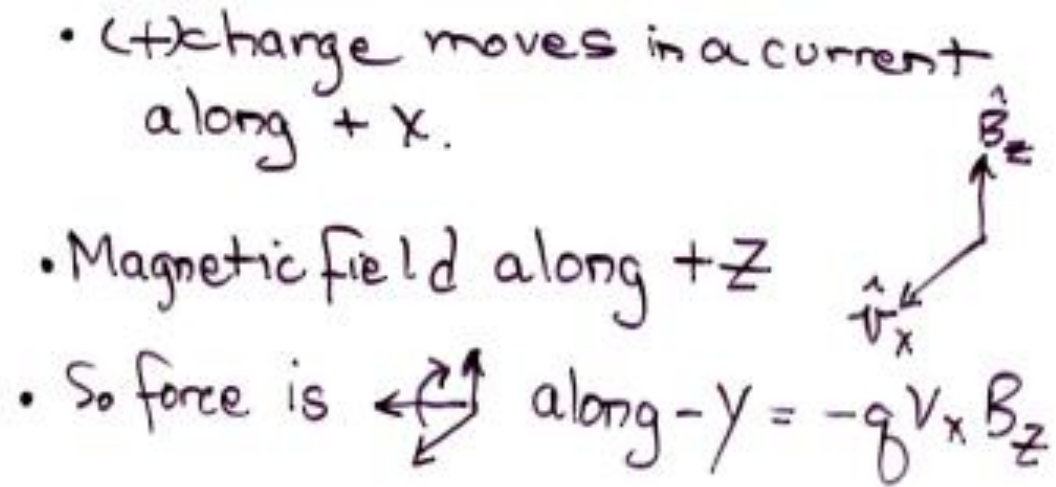 • (+)charge moves in a current
along + x.
B̂z
• Magnetic field along +Z
v̂x
• So force is along -y = -qVxBz